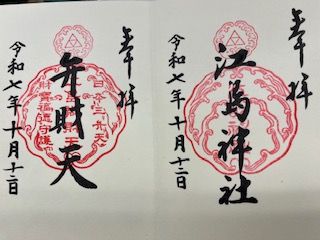 奉拝
江島神社
令和七年十月十二日
奉拝
弁財天
令和七年十月十二日